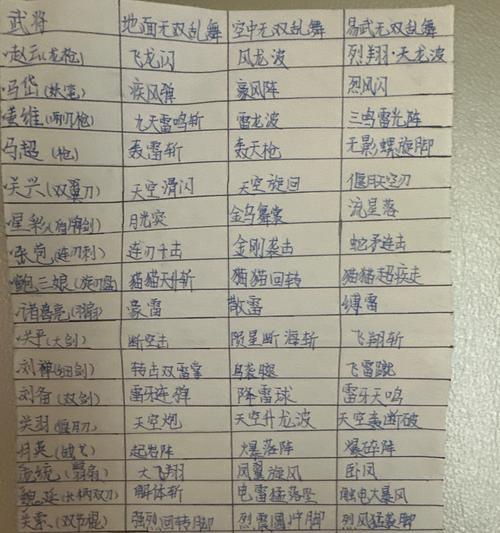 武将 地面无双乱舞 空中无双乱舞 易武无双乱舞
赵云(龙枪) 飞龙闪 风龙波 烈翔·天龙波
马岱(妖笔) 疾风弹 豪风阵 烈风闪
姜维(两刃枪) 九天雷鸣斩 雷龙波 三鸣雷光阵
马超(枪) 轰雷斩 轰天枪 无影螺旋脚
关兴(双翼刀) 天空滑闪 天空旋回 偃月天空刃
星彩(盾牌剑) 月光突 金乌舞裳 流星落
张苞(连刃刺) 连刃十击 金刚袭击 蛇矛连击
鲍三娘(旋刃盘) 猫猫天升斩 猫猫回转 猫猫超疾走
诸葛亮(羽扇) 豪雷 散雷 缚雷
关平(大剑) 断空击 陨星断海斩 飞翔斩
刘禅(细剑) 转占双雷掌 飞雷踢
刘备(双剑) 雷牙连弹 降雷球 雷牙天鸣
关羽(偃月刀) 天空炮 天空升龙波 天空轰断破
月英(战戈) 起岩阵 爆落阵 爆碎阵
大飞翔 凤翼旋风 卧凤
魏延(长柄双刀) 解体斩 电雷猛落坠 触电大暴风
关索(双节棍) 强烈回转脚 烈震圆冲脚 烈风猛袭脚